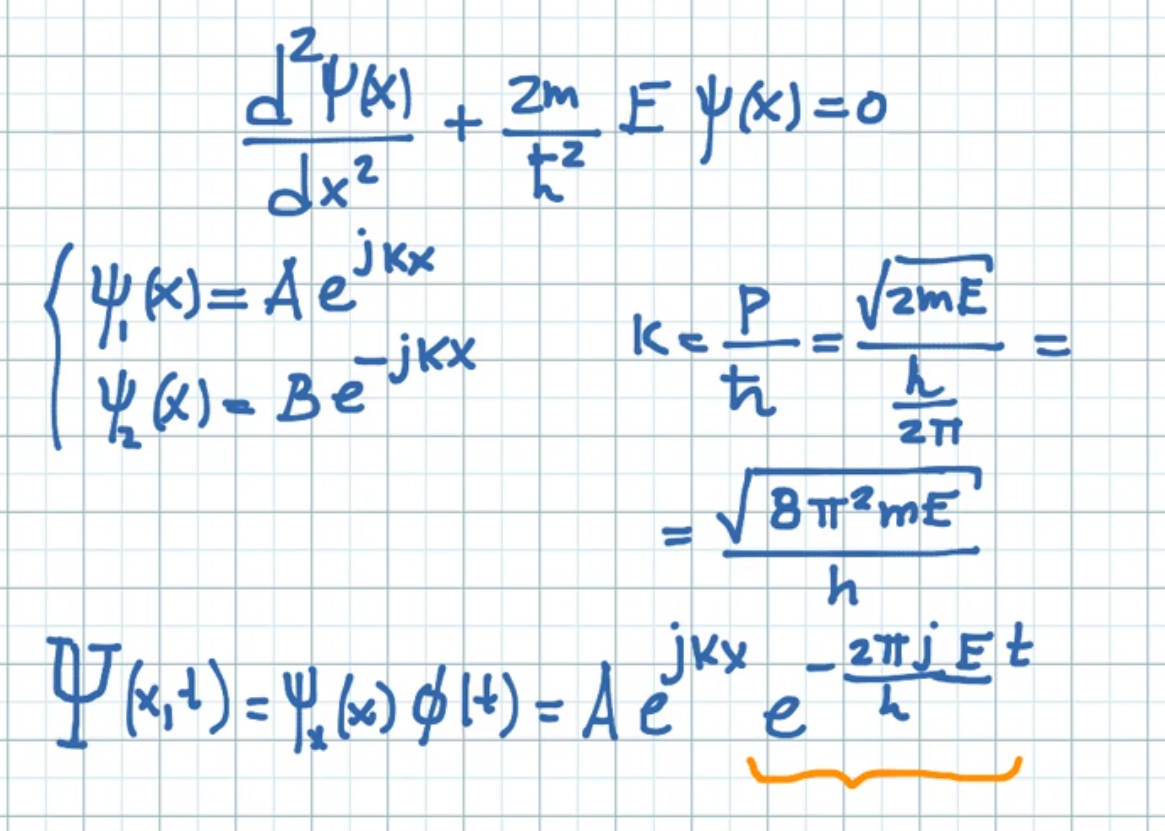 d²ψ(x)/dx² + 2m/ħ² E ψ(x) = 0
ψ₁(x) = A e^{jkx}
ψ₂(x) = B e^{-jkx}
k = p/ħ = √(2mE)/(h/2π) =
= √(8π²mE)/h
Ψ(x,t) = ψₓ(x) ϕ(t) = A e^{jkx} e^{-(2πjE/h)t}